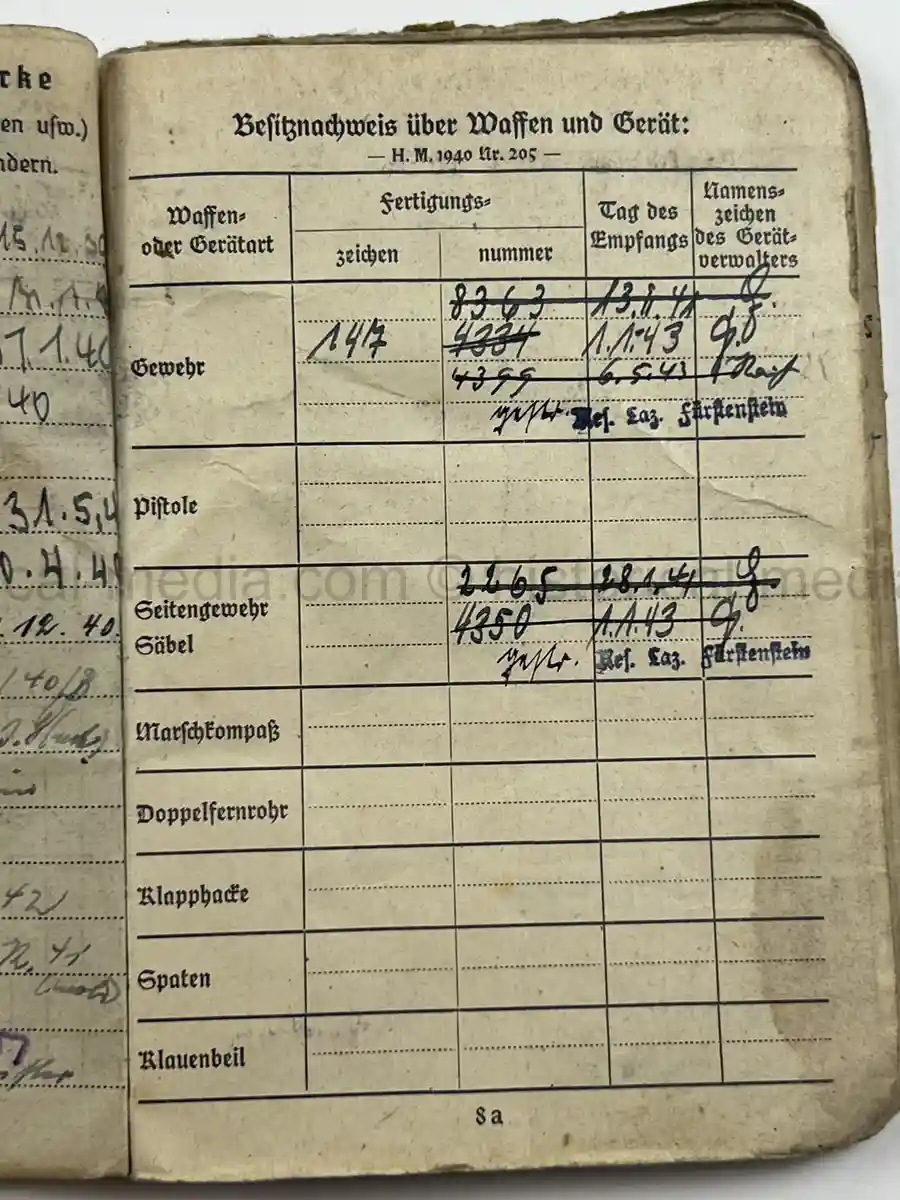 rke
en usw.)
ndern.
15.12.
1.40
40
31.5.4
0.4.4
12.40.
42
41
Besitznachweis über Waffen und Gerät:
— H. M. 1940 Nr. 205 —
Waffen- oder Gerätart
Fertigungs-
zeichen
nummer
Tag des Empfangs
Namens- zeichen des Gerät- verwalters
8363 13.8.41
Gewehr 147 4334 1.1.43
4399 6.5.43
gestr. Res. Laz. Fürstenstein
Pistole
2265 28.1.41
Seitengewehr 4350 1.1.43
Säbel gestr. Res. Laz. Fürstenstein
Marschkompaß
Doppelfernrohr
Klapphacke
Spaten
Klauenbeil
8a
media.com ©